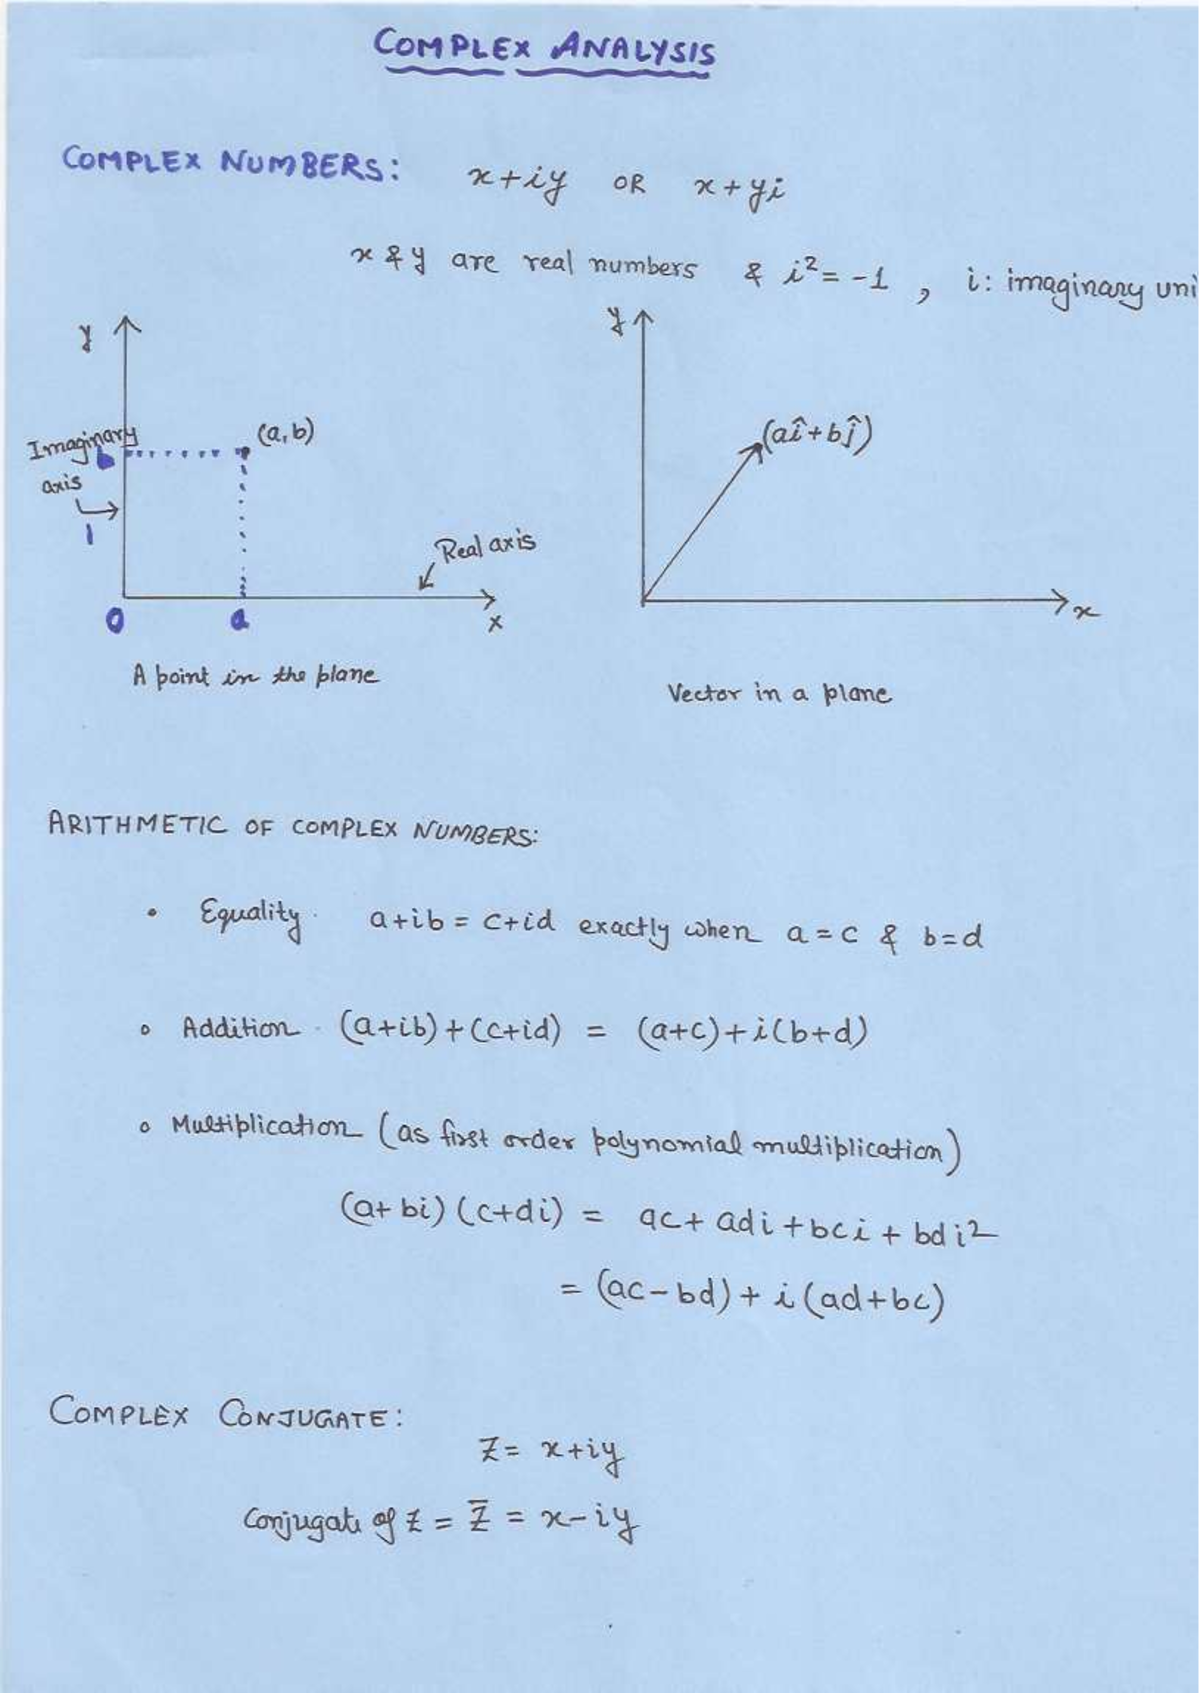 COMPLEX ANALYSIS
COMPLEX NUMBERS: x+iy OR x+yi
x & y are real numbers & i²=-1 , i: imaginary uni
y
Imaginary
axis
b
1
(a,b)
Real axis
0
a
x
A point in the plane
y
(aî+bĵ)
x
Vector in a plane
ARITHMETIC OF COMPLEX NUMBERS:
• Equality. a+ib = c+id exactly when a=c & b=d
• Addition. (a+ib)+(c+id) = (a+c)+i(b+d)
• Multiplication (as first order polynomial multiplication)
(a+bi)(c+di) = ac+adi+bci+bdi²
= (ac-bd)+i(ad+bc)
COMPLEX CONJUGATE:
Z= x+iy
Conjugate of Z = Z̄ = x-iy